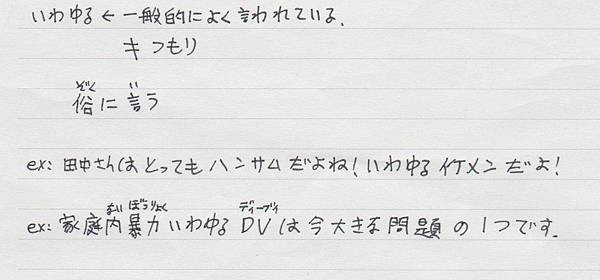 いわゆる ← 一般的によく言われている.
≠ つもり
ぞく い
俗に言う
ex: 田中さんはとってもハンサムだよね! いわゆるイケメンだよ!
ない ぼうりょく ディーブイ
ex: 家庭内暴力いわゆるDVは今大きな問題の1つです.